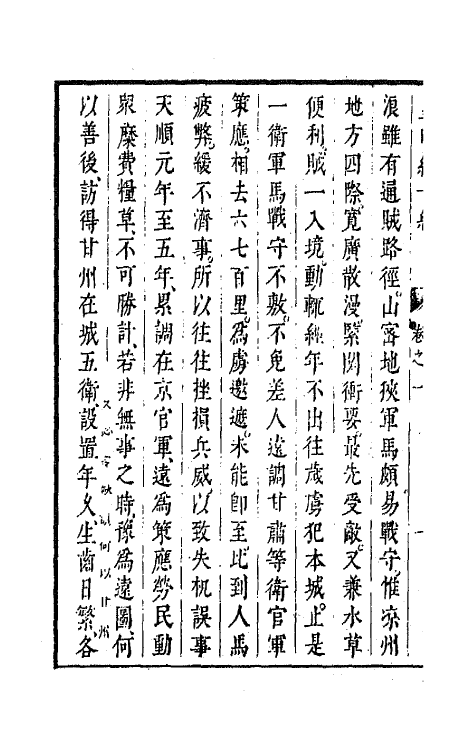 浪雖有通賊路徑山窄地狹軍馬頗易戰守惟涼州
地方四際寬廣散漫緊関衝要最先受敵又兼水草
便利賊一入境動輒經年不出往歲虜犯本城止是
一衛軍馬戰守不敷不免差人遠調甘肅等衛官軍
策應相去六七百里爲虜邀遮未能卽至比到人馬
疲弊緩不濟事所以往往挫損兵威以致失机誤事
天順元年至五年累調在京官軍遠爲策應勞民動
衆糜費糧草不可勝計若非無事之時豫爲遠圖何
以善後訪得甘州在城五衛設置年久生齒日繁各
何以甘州
卷之一